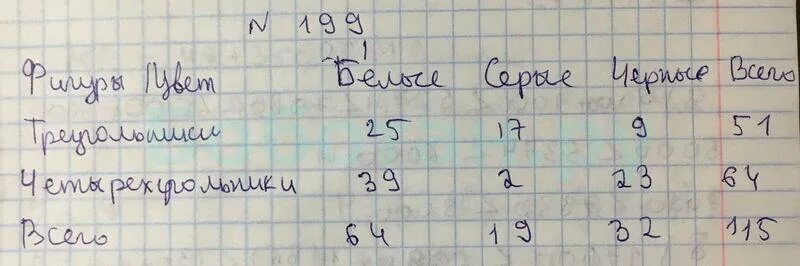 N 199
Фигуры / Цвет Белые Серые Черные Всего
Треугольники 25 17 9 51
Четырехугольники 39 2 23 64
Всего 64 19 32 115